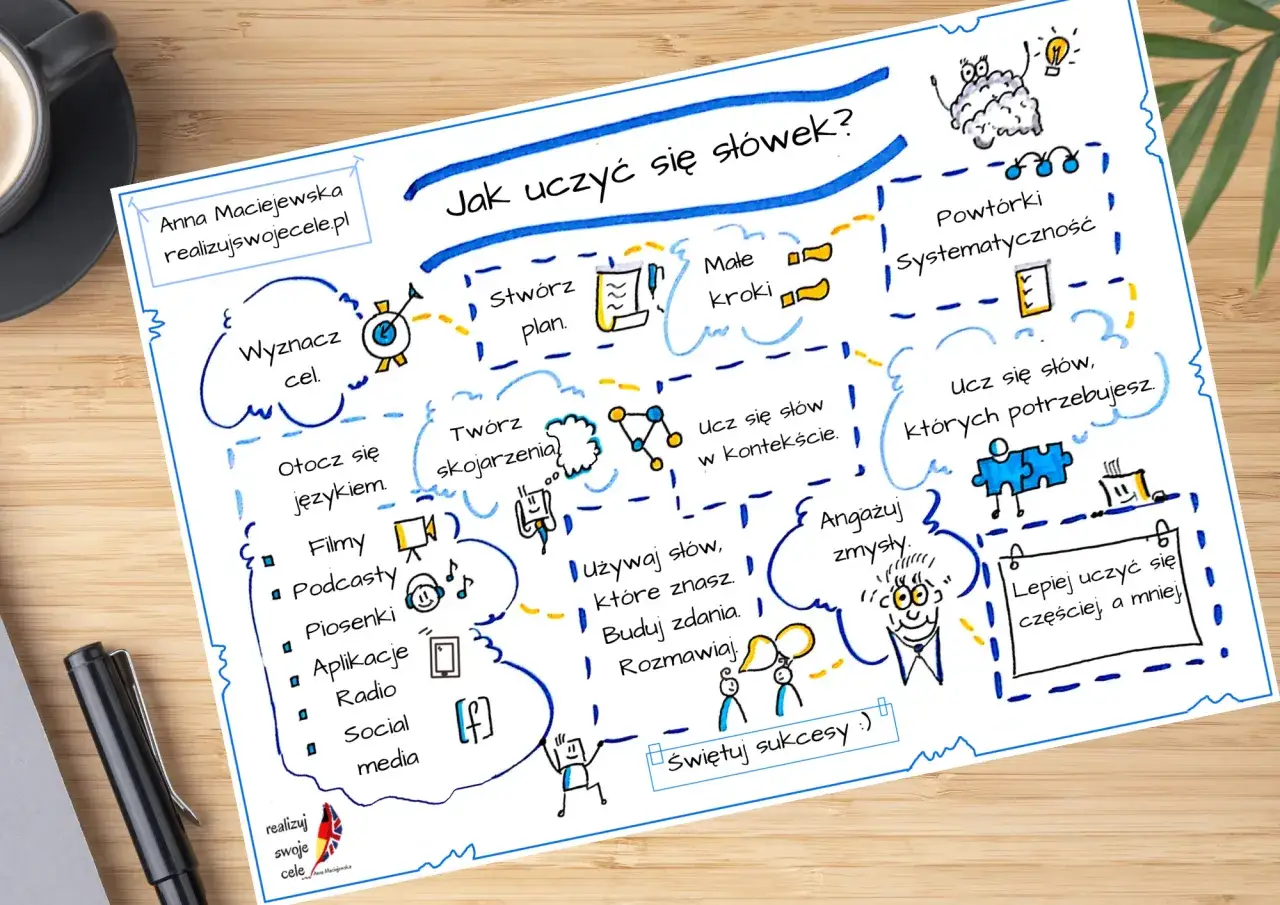 Jak uczyć się słówek?
Anna Maciejewska
realizujswojecele.pl
Wyznacz
cel.
Stwórz
plan.
Małe
kroki
Powtórki
Systematyczność
Ucz się słów,
których potrzebujesz.
Ucz się słów
w kontekście.
Twórz
skojarzenia
Otocz się
językiem.
Filmy
Podcasty
Piosenki
Aplikacje
Radio
Social
media
f
Używaj słów,
które znasz.
Buduj zdania.
Rozmawiaj.
Angażuj
zmysły.
Lepiej uczyć się
częściej, a mniej.
Świętuj sukcesy :)
realizuj
swoje
cele
Anna Maciejewska